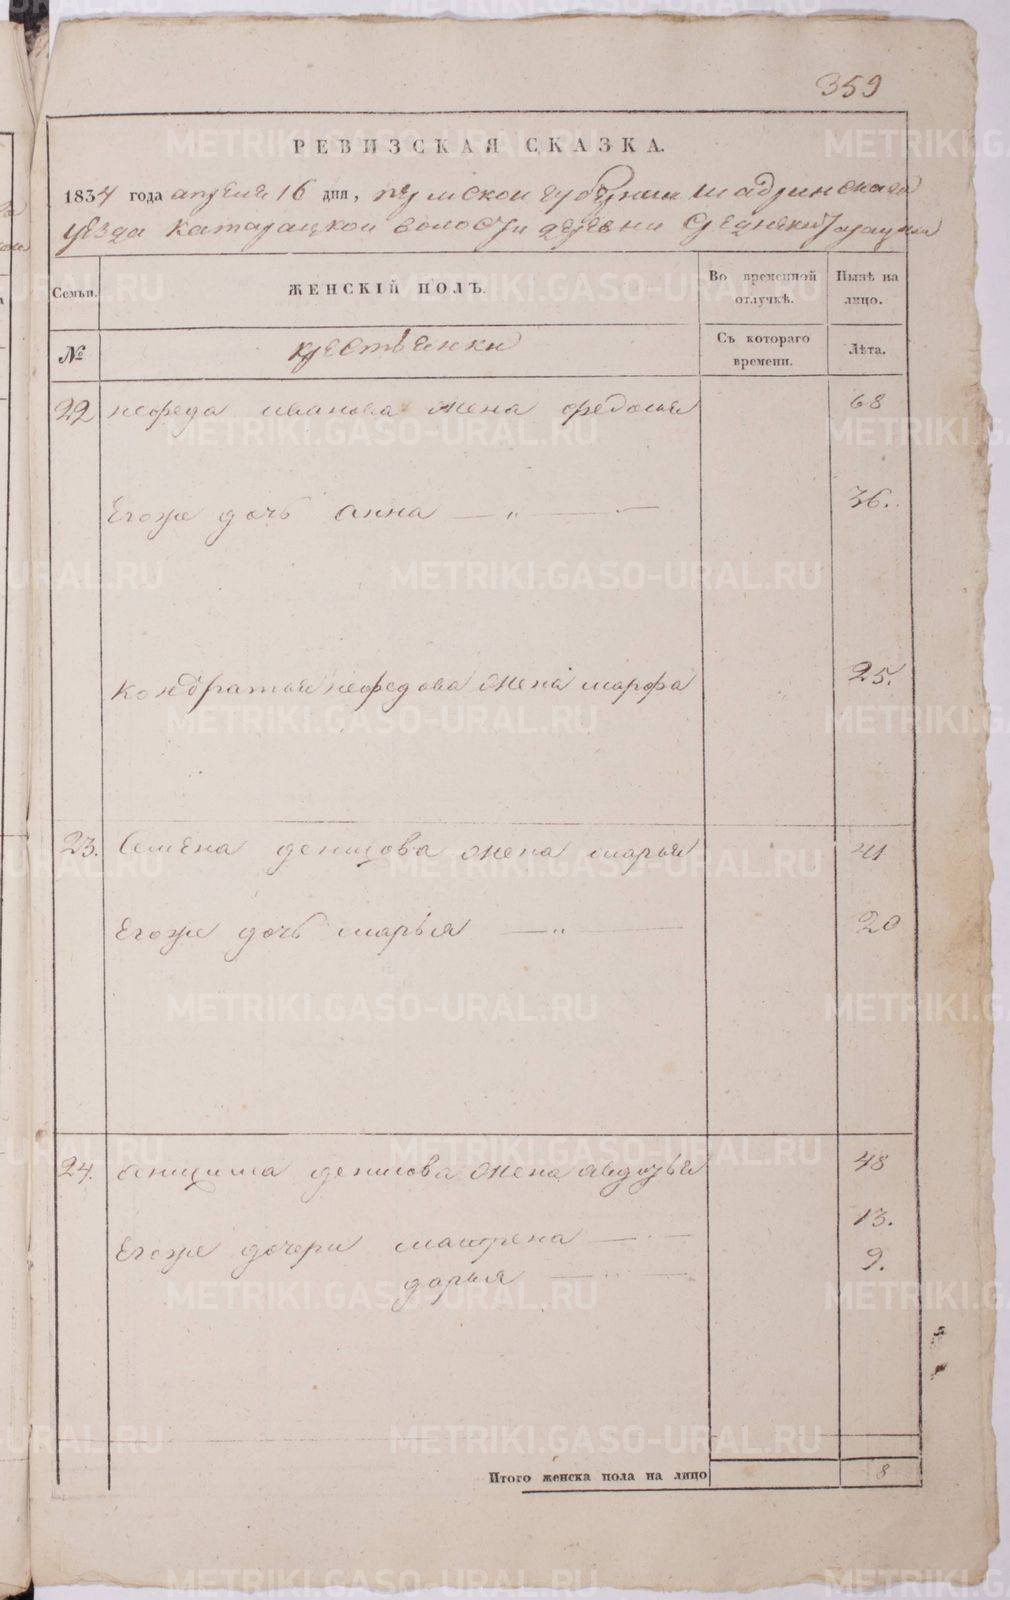 359
РЕВИЗСКАЯ СКАЗКА.
1834 года апреля 16 дня, пермской губернии шадринскаго
уезда катарацкой волости деревни
Семьи. ЖЕНСКІЙ ПОЛЪ. Во временной отлучкѣ. Нынѣ на лицо.
№ крестьянки Съ котораго времени. Лѣта.
22 нефеда иванова жена федосья 68
Егоже дочь анна — „ — 36.
кондратья нефедова жена марфа 25.
23. Семена денисова жена марья 41
Егоже дочь марья — „ — 20
24. анцима денисова жена авдотья 48
Егоже дочери матрена — „ — 13.
дарья — „ — 9.
Итого женска пола на лицо 8
METRIKI.GASO-URAL.RU